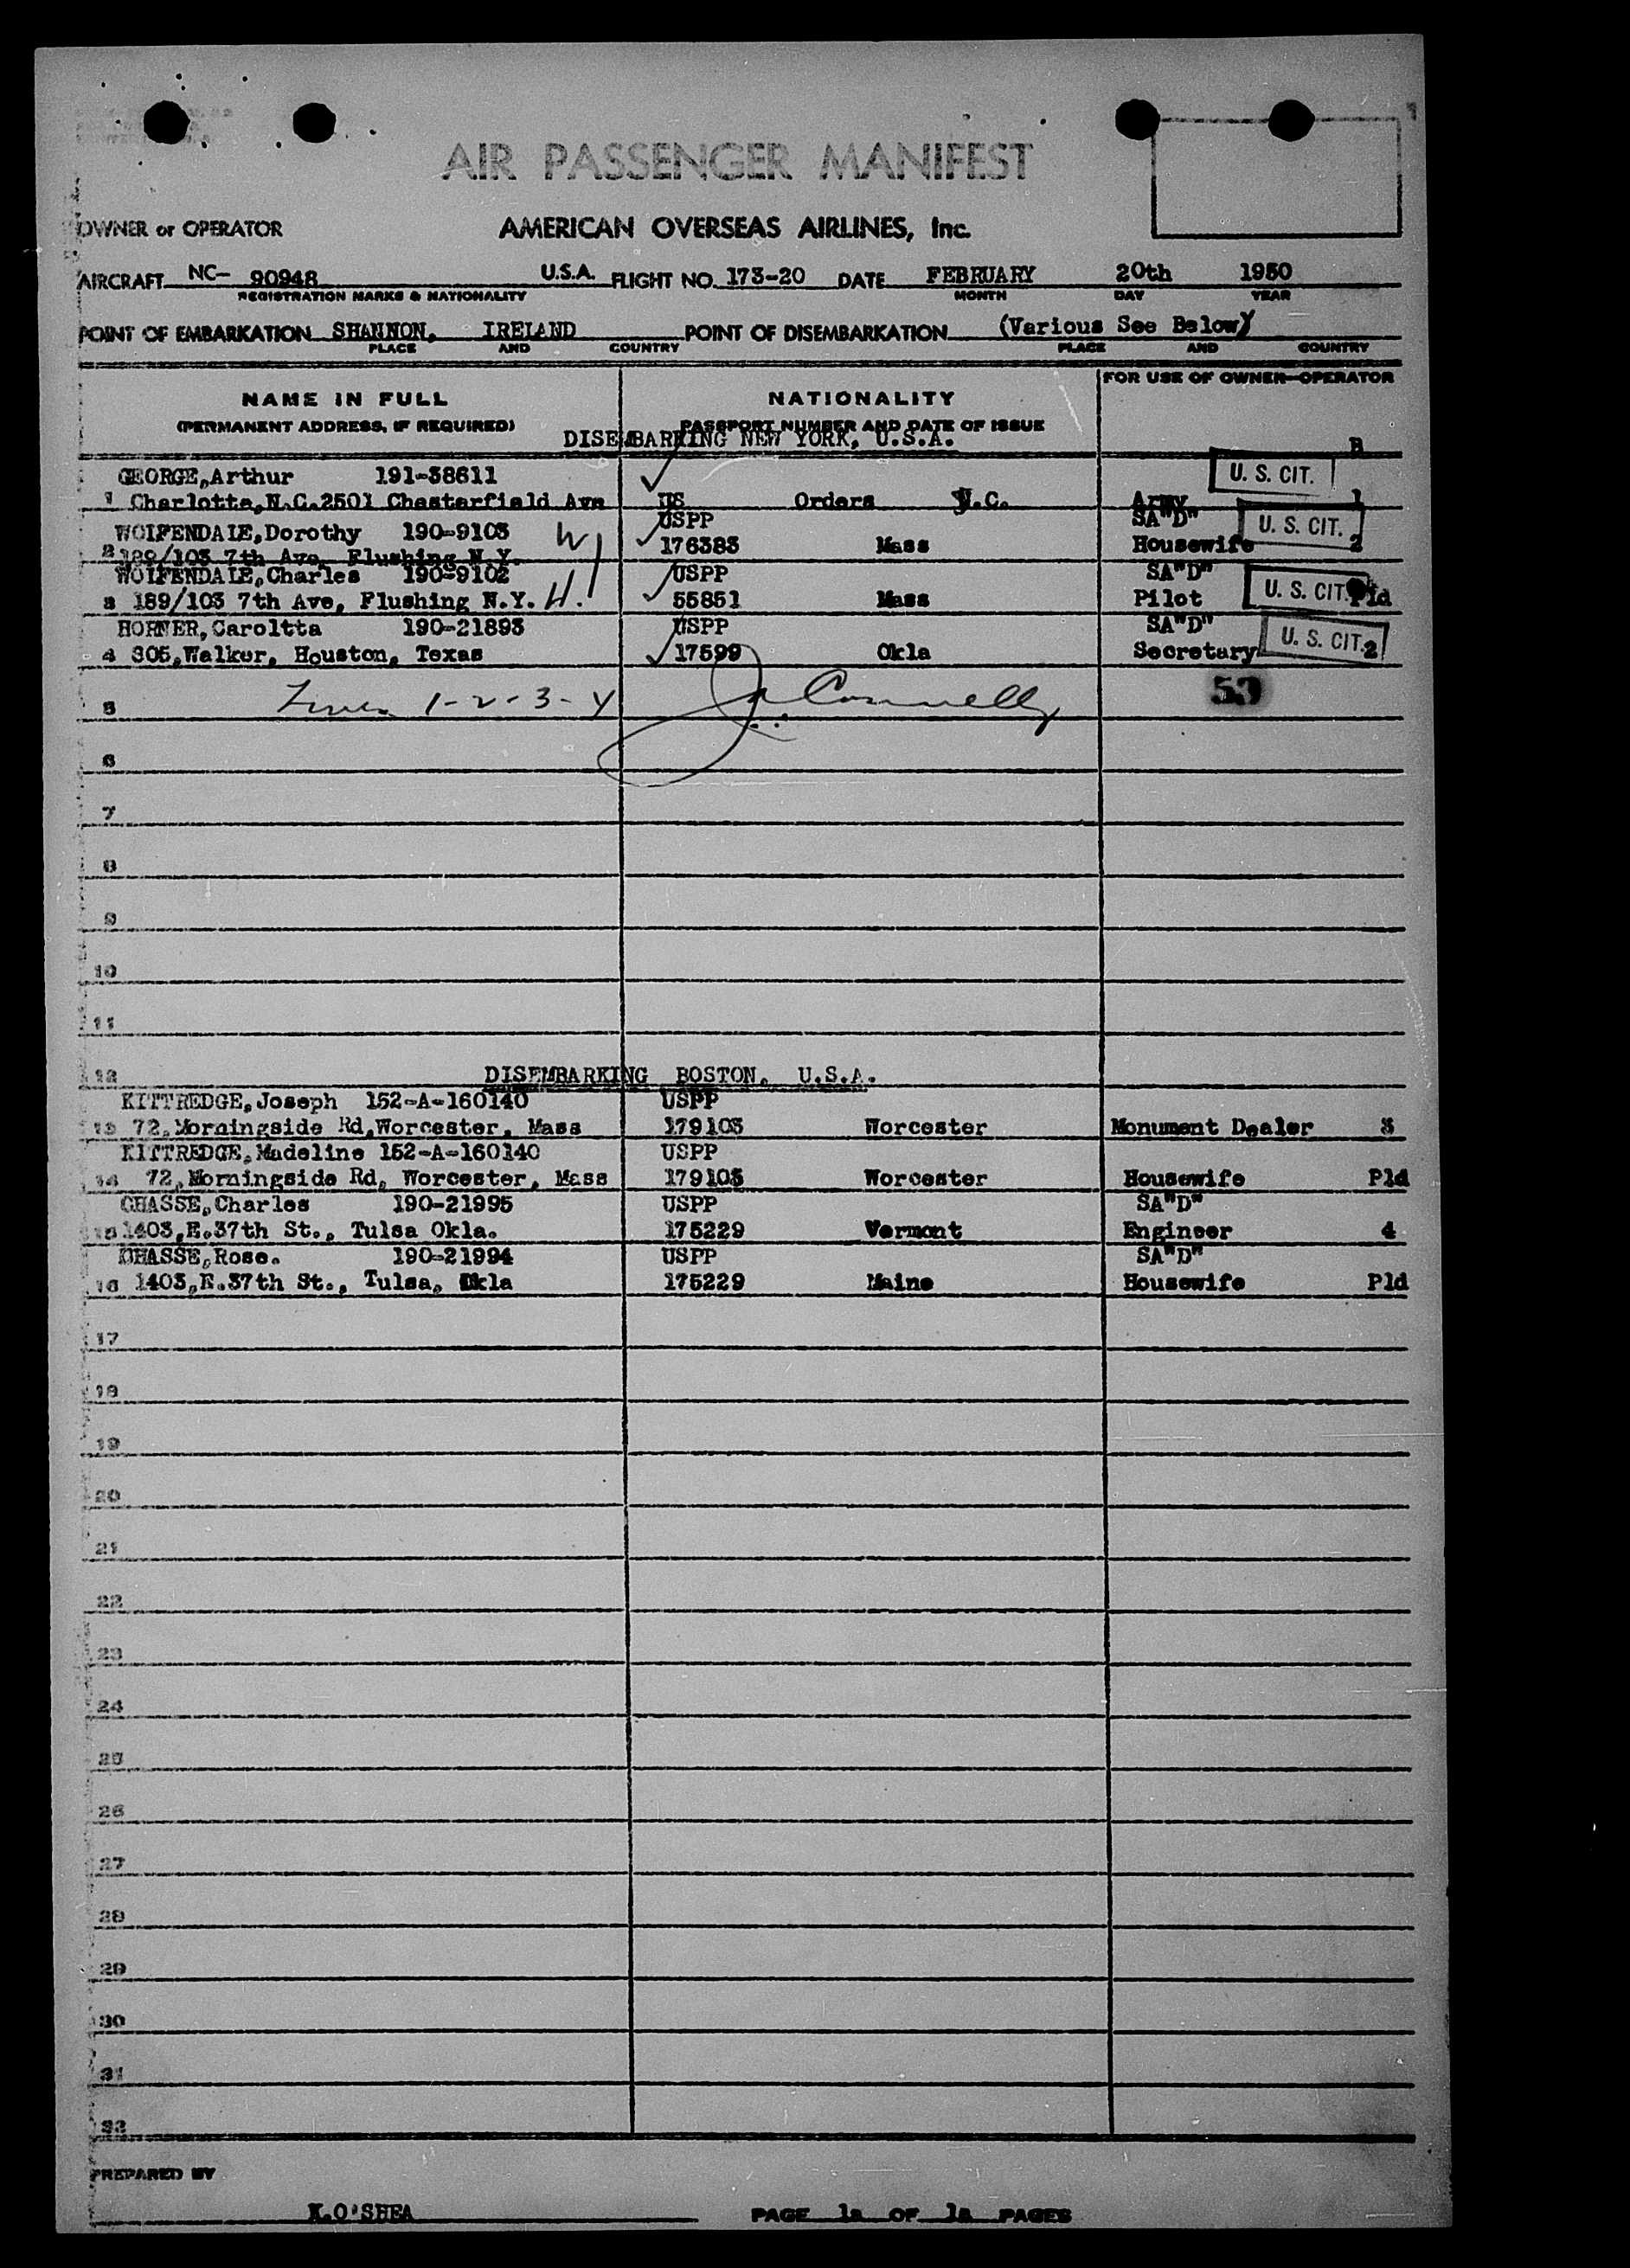 AIR PASSENGER MANIFEST
OWNER or OPERATOR AMERICAN OVERSEAS AIRLINES, Inc.
AIRCRAFT NC- 90948 U.S.A. FLIGHT NO. 173-20 DATE FEBRUARY 20th 1950
REGISTRATION MARKS & NATIONALITY MONTH DAY YEAR
POINT OF EMBARKATION SHANNON, IRELAND POINT OF DISEMBARKATION (Various See Below)
PLACE AND COUNTRY PLACE AND COUNTRY
FOR USE OF OWNER-OPERATOR
NAME IN FULL NATIONALITY
(PERMANENT ADDRESS, IF REQUIRED) PASSPORT NUMBER AND DATE OF ISSUE
DISEMBARKING NEW YORK, U.S.A. B
GEORGE,Arthur 191-38611 U. S. CIT.
1 Charlotte,N.C.2501 Chesterfield Ave US Orders N.C. Army 1
USPP SA"D"
WOLFENDALE,Dorothy 190-9103 W U. S. CIT.
2 189/103 7th Ave, Flushing N.Y. 176383 Mass Housewife 2
WOLFENDALE,Charles 190-9102 USPP SA"D" U. S. CIT.
3 189/103 7th Ave, Flushing N.Y. H. 55851 Mass Pilot Pld
HORNER,Caroltta 190-21893 USPP SA"D" U. S. CIT.
4 305,Walker, Houston, Texas 17599 Okla Secretary 2
53
5 Lines 1-2-3-4 J. Connelly
6
7
8
9
10
11
12 DISEMBARKING BOSTON, U.S.A.
KITTREDGE,Joseph 152-A-160140 USPP
13 72,Morningside Rd,Worcester, Mass 179103 Worcester Monument Dealer 3
KITTREDGE,Madeline 152-A-160140 USPP
14 72,Morningside Rd, Worcester, Mass 179103 Worcester Housewife Pld
CHASSE,Charles 190-21995 USPP SA"D"
15 1403,E.37th St., Tulsa Okla. 175229 Vermont Engineer 4
CHASSE,Rose. 190-21994 USPP SA"D"
16 1403,E.37th St., Tulsa, Okla 175229 Maine Housewife Pld
17
18
19
20
21
22
23
24
25
26
27
28
29
30
31
32
PREPARED BY
K.O'SHEA PAGE 1a OF 1a PAGES